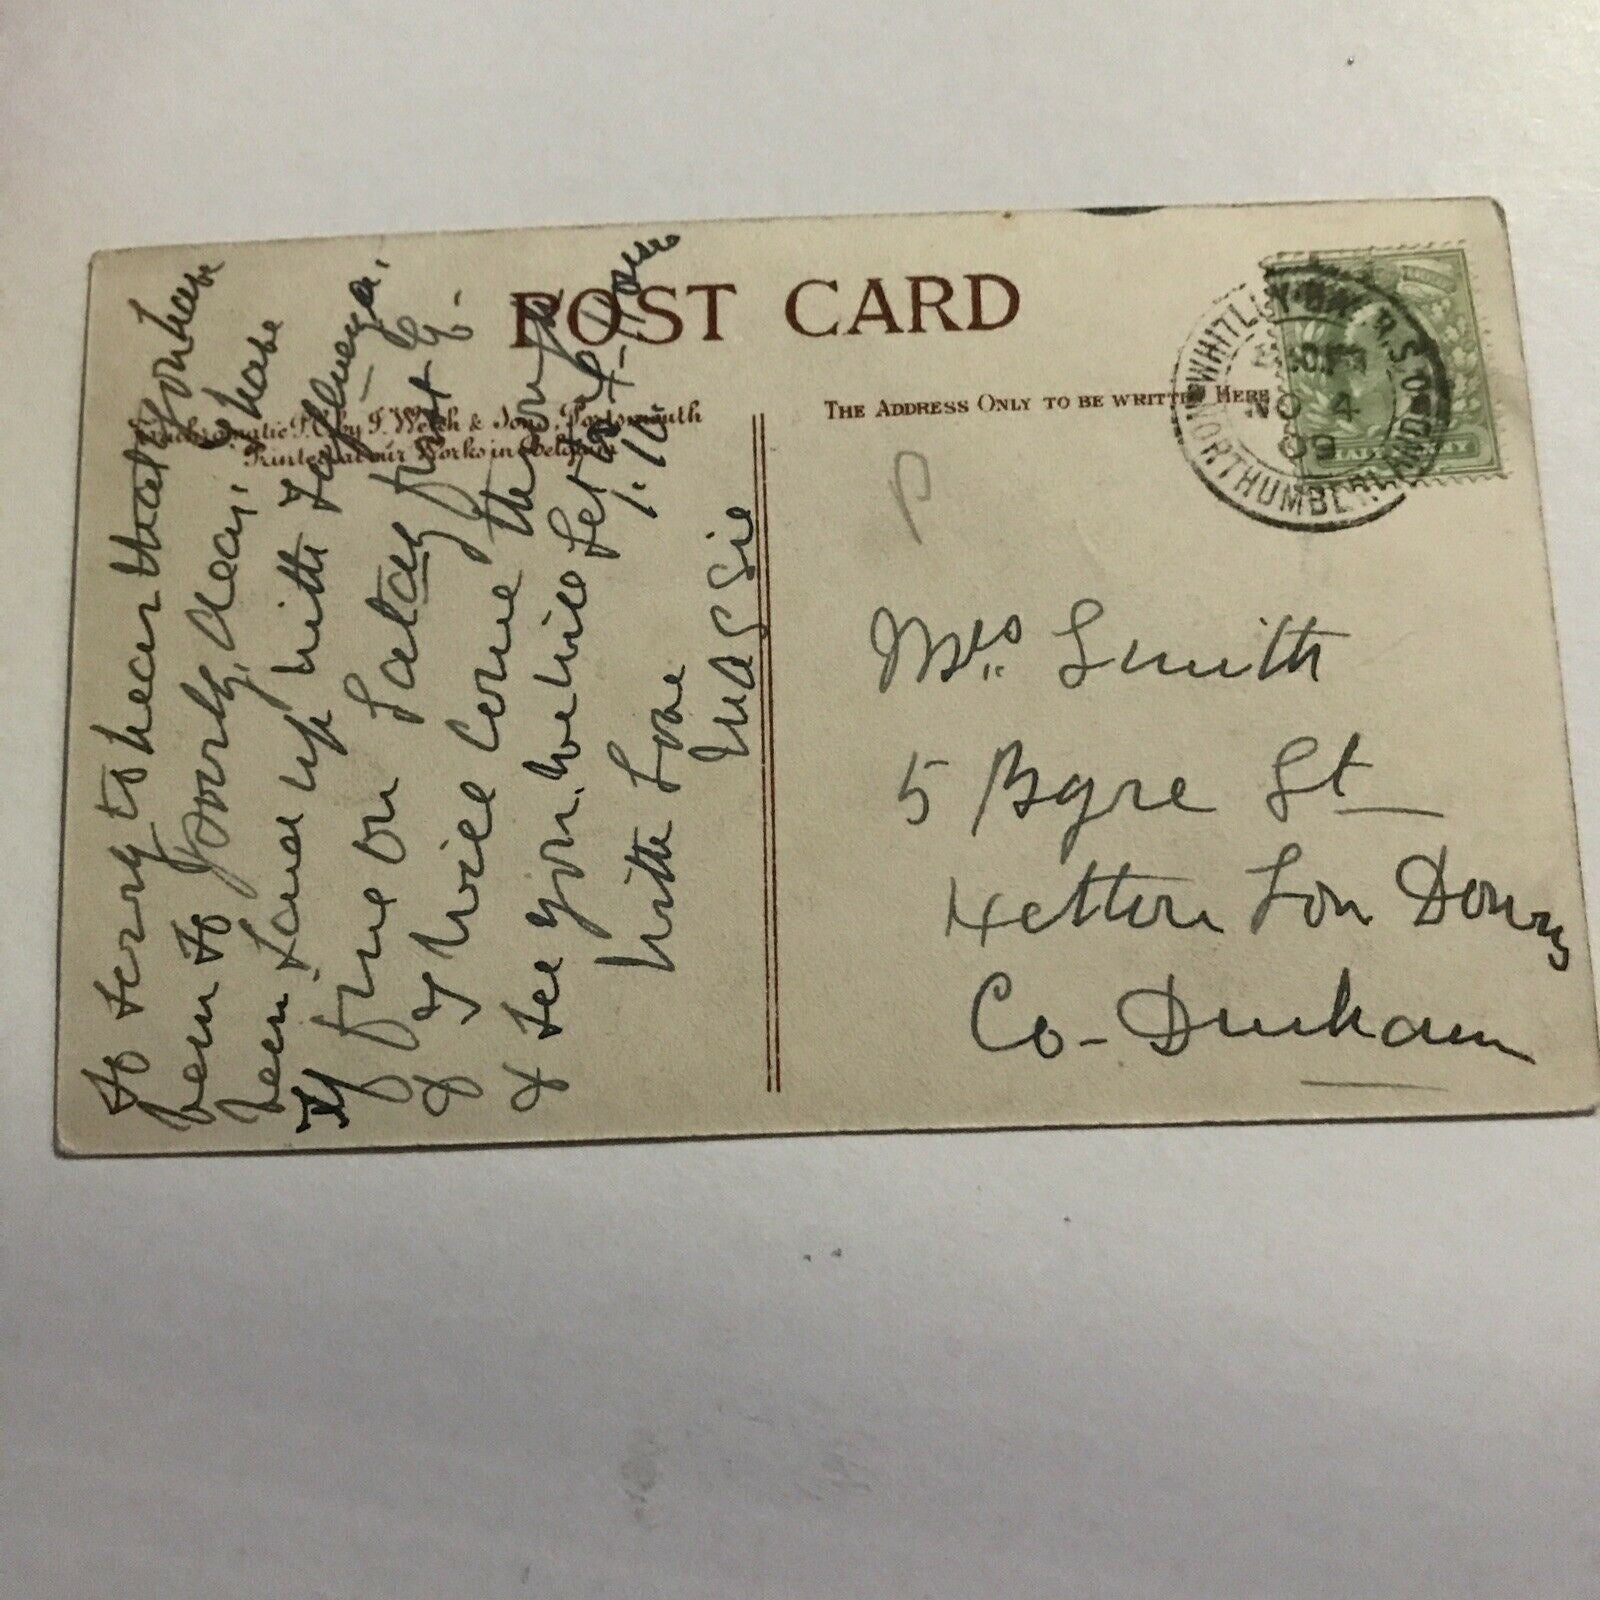 POST CARD
Photochromatic P.C. by J. Welch & Sons, Portsmouth
Printed at our Works in Belgium
THE ADDRESS ONLY TO BE WRITTEN HERE
WHITLEY-BAY R.S.O.
NO 4
09
NORTHUMBERLAND
So sorry to hear that you have
been so poorly, dear, I have
been laid up with Influenza.
If fine on Satay, first
& I will come through
& see you. we will let
With Love
Massie
P
Mrs. Smith
5 Byre St
Hetton Lon Downs
Co - Durham